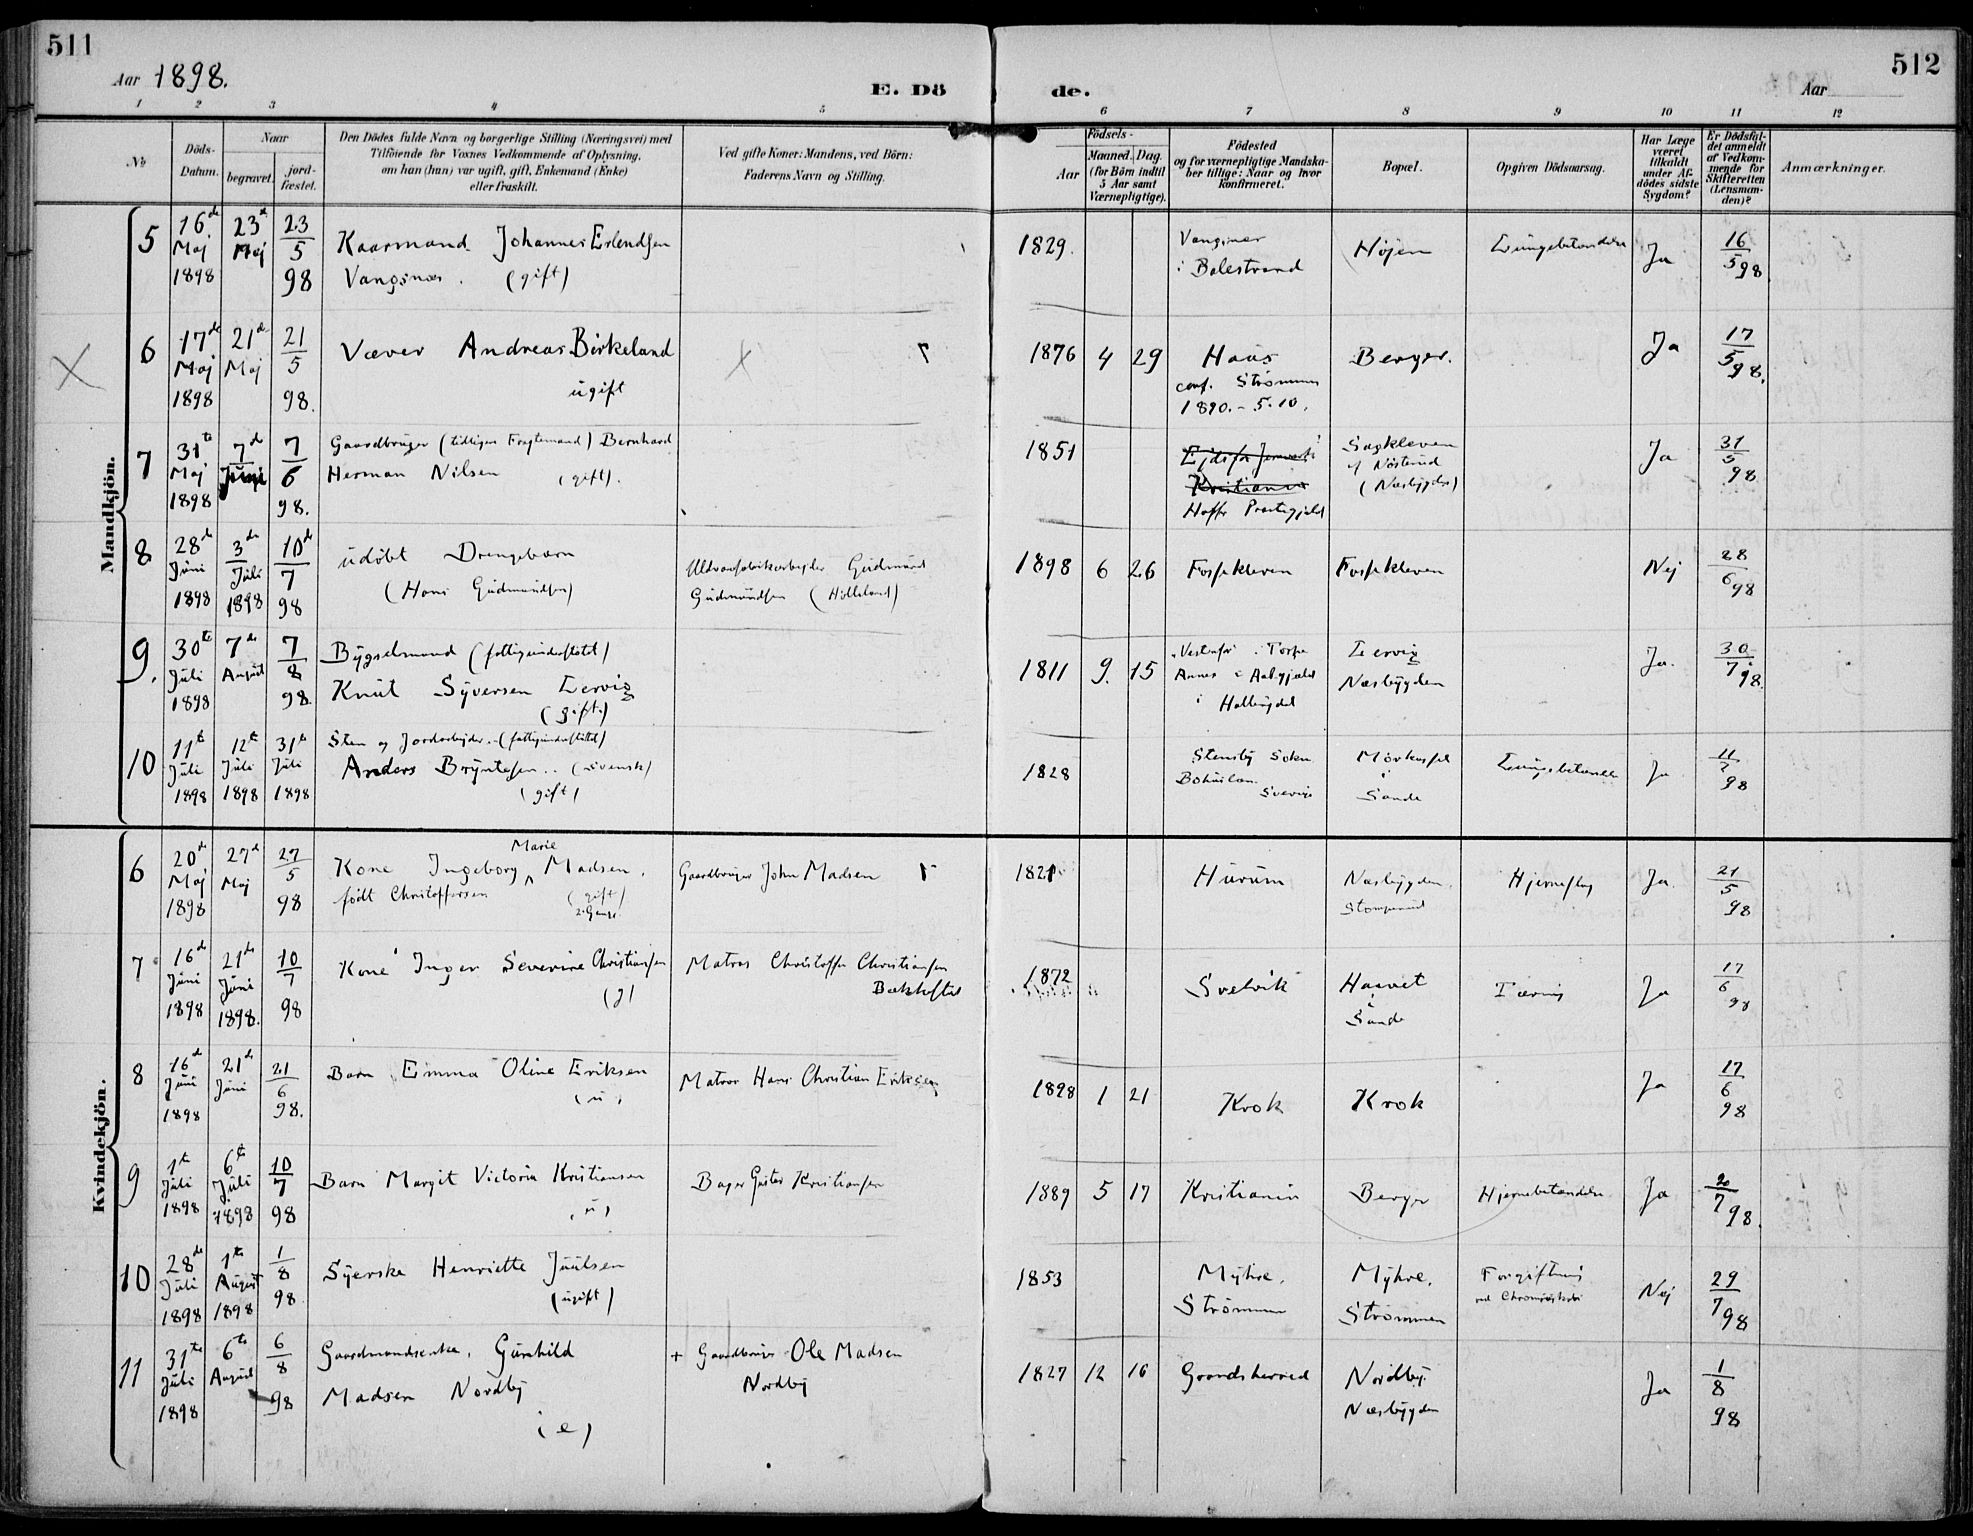 511
Aar 1898.
E. Dö de.
Aar
512
1 2 3 4 5 6 7 8 9 10 11 12
No
Döds-Datum.
Naar
begravet.
jord-fæstet.
Den Dödes fulde Navn og borgerlige Stilling (Næringsvei) med
Tilföiende for Voxnes Vedkommende af Oplysning,
om han (hun) var ugift, gift, Enkemand (Enke)
eller fraskilt.
Ved gifte Koner: Mandens, ved Börn:
Faderens Navn og Stilling.
Födsels-
Aar
Maaned. Dag.
(for Börn indtil
5 Aar samt
Værnepligtige).
Födested
og for værnepligtige Mandska-
ber tillige: Naar og hvor
konfirmeret.
Bopæl.
Opgiven Dödsaarsag.
Har Læge
været
tilkaldt
under Af-
dödes sidste
Sygdom?
Er Dödsfal-
det anmeldt
af Vedkom-
mende for
Skifteretten
(Lensman-
den)?
Anmærkninger.
Mandkjön.
5 16de Maj 1898 23de Maj 23/5 98 Kaarmand Johannes Erlendsen
Vangsnæs. (gift) 1829. Vangsnæs
i Balestrand Højen Lungebetændelse Ja 16/5 98
6 17de Maj 1898 21de Maj 21/5 98. Væver Andreas Birkeland
ugift 1876 4 29 Haus
conf. Strømmen
1890. - 5.10. Berger. Ja 17/5 98.
7 31te Maj 1898 7de Juni 7/6 98. Gaardbruger (tidligere Fragtemand) Bernhard
Herman Nilsen (gift). 1851 Kristiania
Hoffs Prestegjeld Sagkleven
(Næsbygden) Ja 31/5 98
8 28de Juni 1898 3de Juli 1898 10de/7 98 udøbt Drengebarn
(Hans Gudmundsen) Gudmund
Gudmundsen 1898 6 26 Fossekleven Fossekleven Nej 28/6 98
9. 30te Juli 1898 7de August 7/8 98. Bygselmand (fattigunderstøttet)
Knut Syversen Lervig
(gift.) 1811 9. 15 i Torpe
Annex i Aal gjæld
i Hallingdal Lervig
Næsbygden Ja. 30/7 98.
10 11te Juli 1898 12te Juli 1898 31te Juli 1898 Sten og Jordarbejder. (fattigunderstøttet)
Anders Bryntesen.. (svensk)
(gift) 1828 Stensby Sokn
Bohuslän
Sverige i
Sande Lungebetændelse Ja 11/7 98
Kvindekjön.
6 20de Maj 1898 27de Maj 27/5 98 Kone Ingeborg Marie Madsen.
født Christoffersen (gift)
2. Gang Gaardbruger John Madsen 1821 Hurum Næsbygden.
Stomperud Hjerneslag Ja. 21/5 98
7 16de Juni 1898 21de Juni 1898. 10/7 98 Kone Inger Severine Christiansen
(g) Matros Christoffer Christiansen
1872 Svelvik Haavet
i
Sande Tæring Ja 17/6 98
8 16de Juni 1898 21de Juni 21/6 98. Barn Emma Oline Eriksen
(u) Matros Hans Christian Eriksen 1898 1 21 Krok Krok Ja 17/6 98
9 1te Juli 1898 6te Juli 1898 10/7 98 Barn Margit Victoria Kristiansen
(u) Bager Gustav Kristiansen 1889 5 17 Kristiania Berger Hjernebetændelse Ja 7 98.
10 28de Juli 1898 1te August 1898 1/8 98 Syerske Henriette Juulsen
(ugift) 1853 Myhre.
Strømmen Myhre.
Strømmen Forgiftning
Nej 29/7 98
11 31te Juli 1898 6te August 6/8 98 Gaardmandsenke. Gunhild
Madsen Nordby
(e) + Gaardbruger Ole Madsen
Nordby 1827 12 16 Grandsherred Nordby
Næsbygden Ja 1/8 98